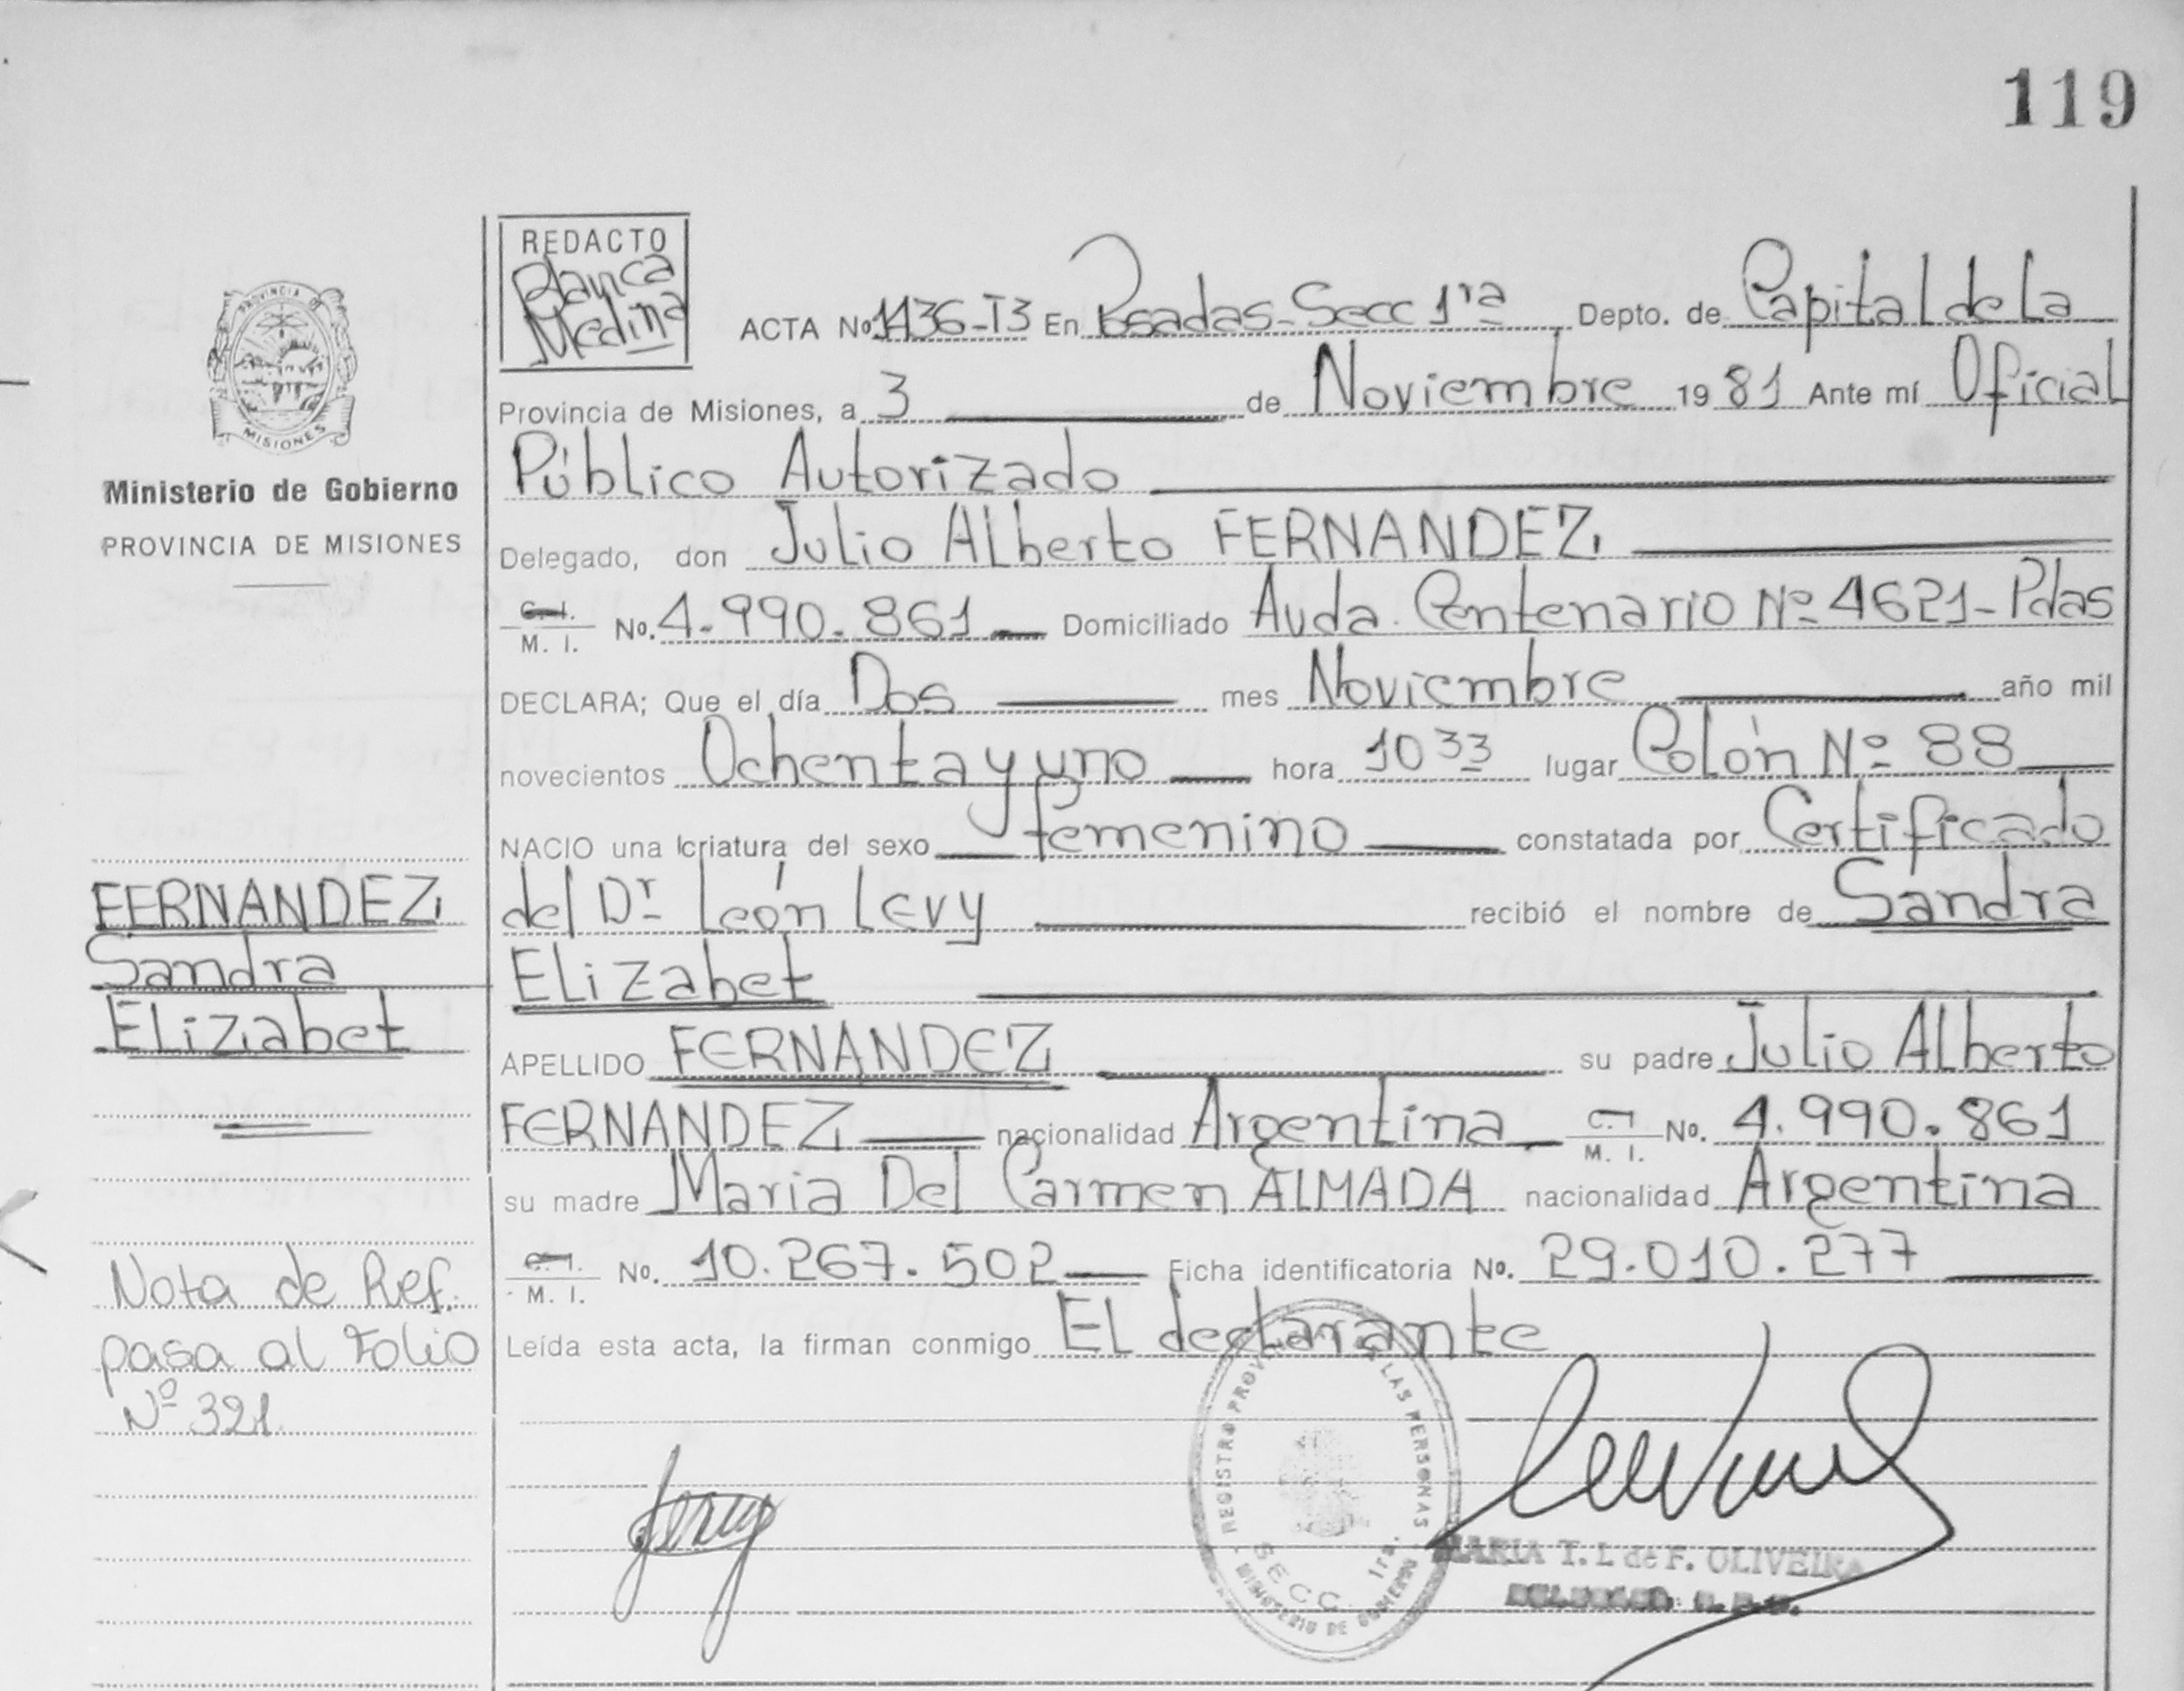 119
REDACTO
Blanca
Medina
ACTA No 1436-T3 En Posadas-Secc 1ra Depto. de Capital de La
Provincia de Misiones, a 3 de Noviembre 1981 Ante mí Oficial
Público Autorizado
Delegado, don Julio Alberto FERNANDEZ
C. I.
M. I. No. 4.990.861 Domiciliado Avda. Centenario Nº 4621-Pdas
DECLARA; Que el día Dos mes Noviembre año mil
novecientos Ochenta y uno hora 10 33 lugar Colón Nº 88
NACIO una criatura del sexo femenino constatada por Certificado
del Dr León Levy recibió el nombre de Sandra
Elizabet
APELLIDO FERNANDEZ su padre Julio Alberto
FERNANDEZ nacionalidad Argentina C. I. M. I. No. 4.990.861
su madre Maria Del Carmen ALMADA nacionalidad Argentina
C. I.
M. I. No. 10.267.502 Ficha identificatoria No. 29.010.277
Leída esta acta, la firman conmigo El declarante
PROVINCIA DE
MISIONES
Ministerio de Gobierno
PROVINCIA DE MISIONES
FERNANDEZ
Sandra
Elizabet
Nota de Ref.
pasa al Folio
Nº 321.
REGISTRO PROV LAS PERSONAS
SECC. 1ra.
MINISTERIO DE GOBIERNO
MARIA T. L de F. OLIVEIRA